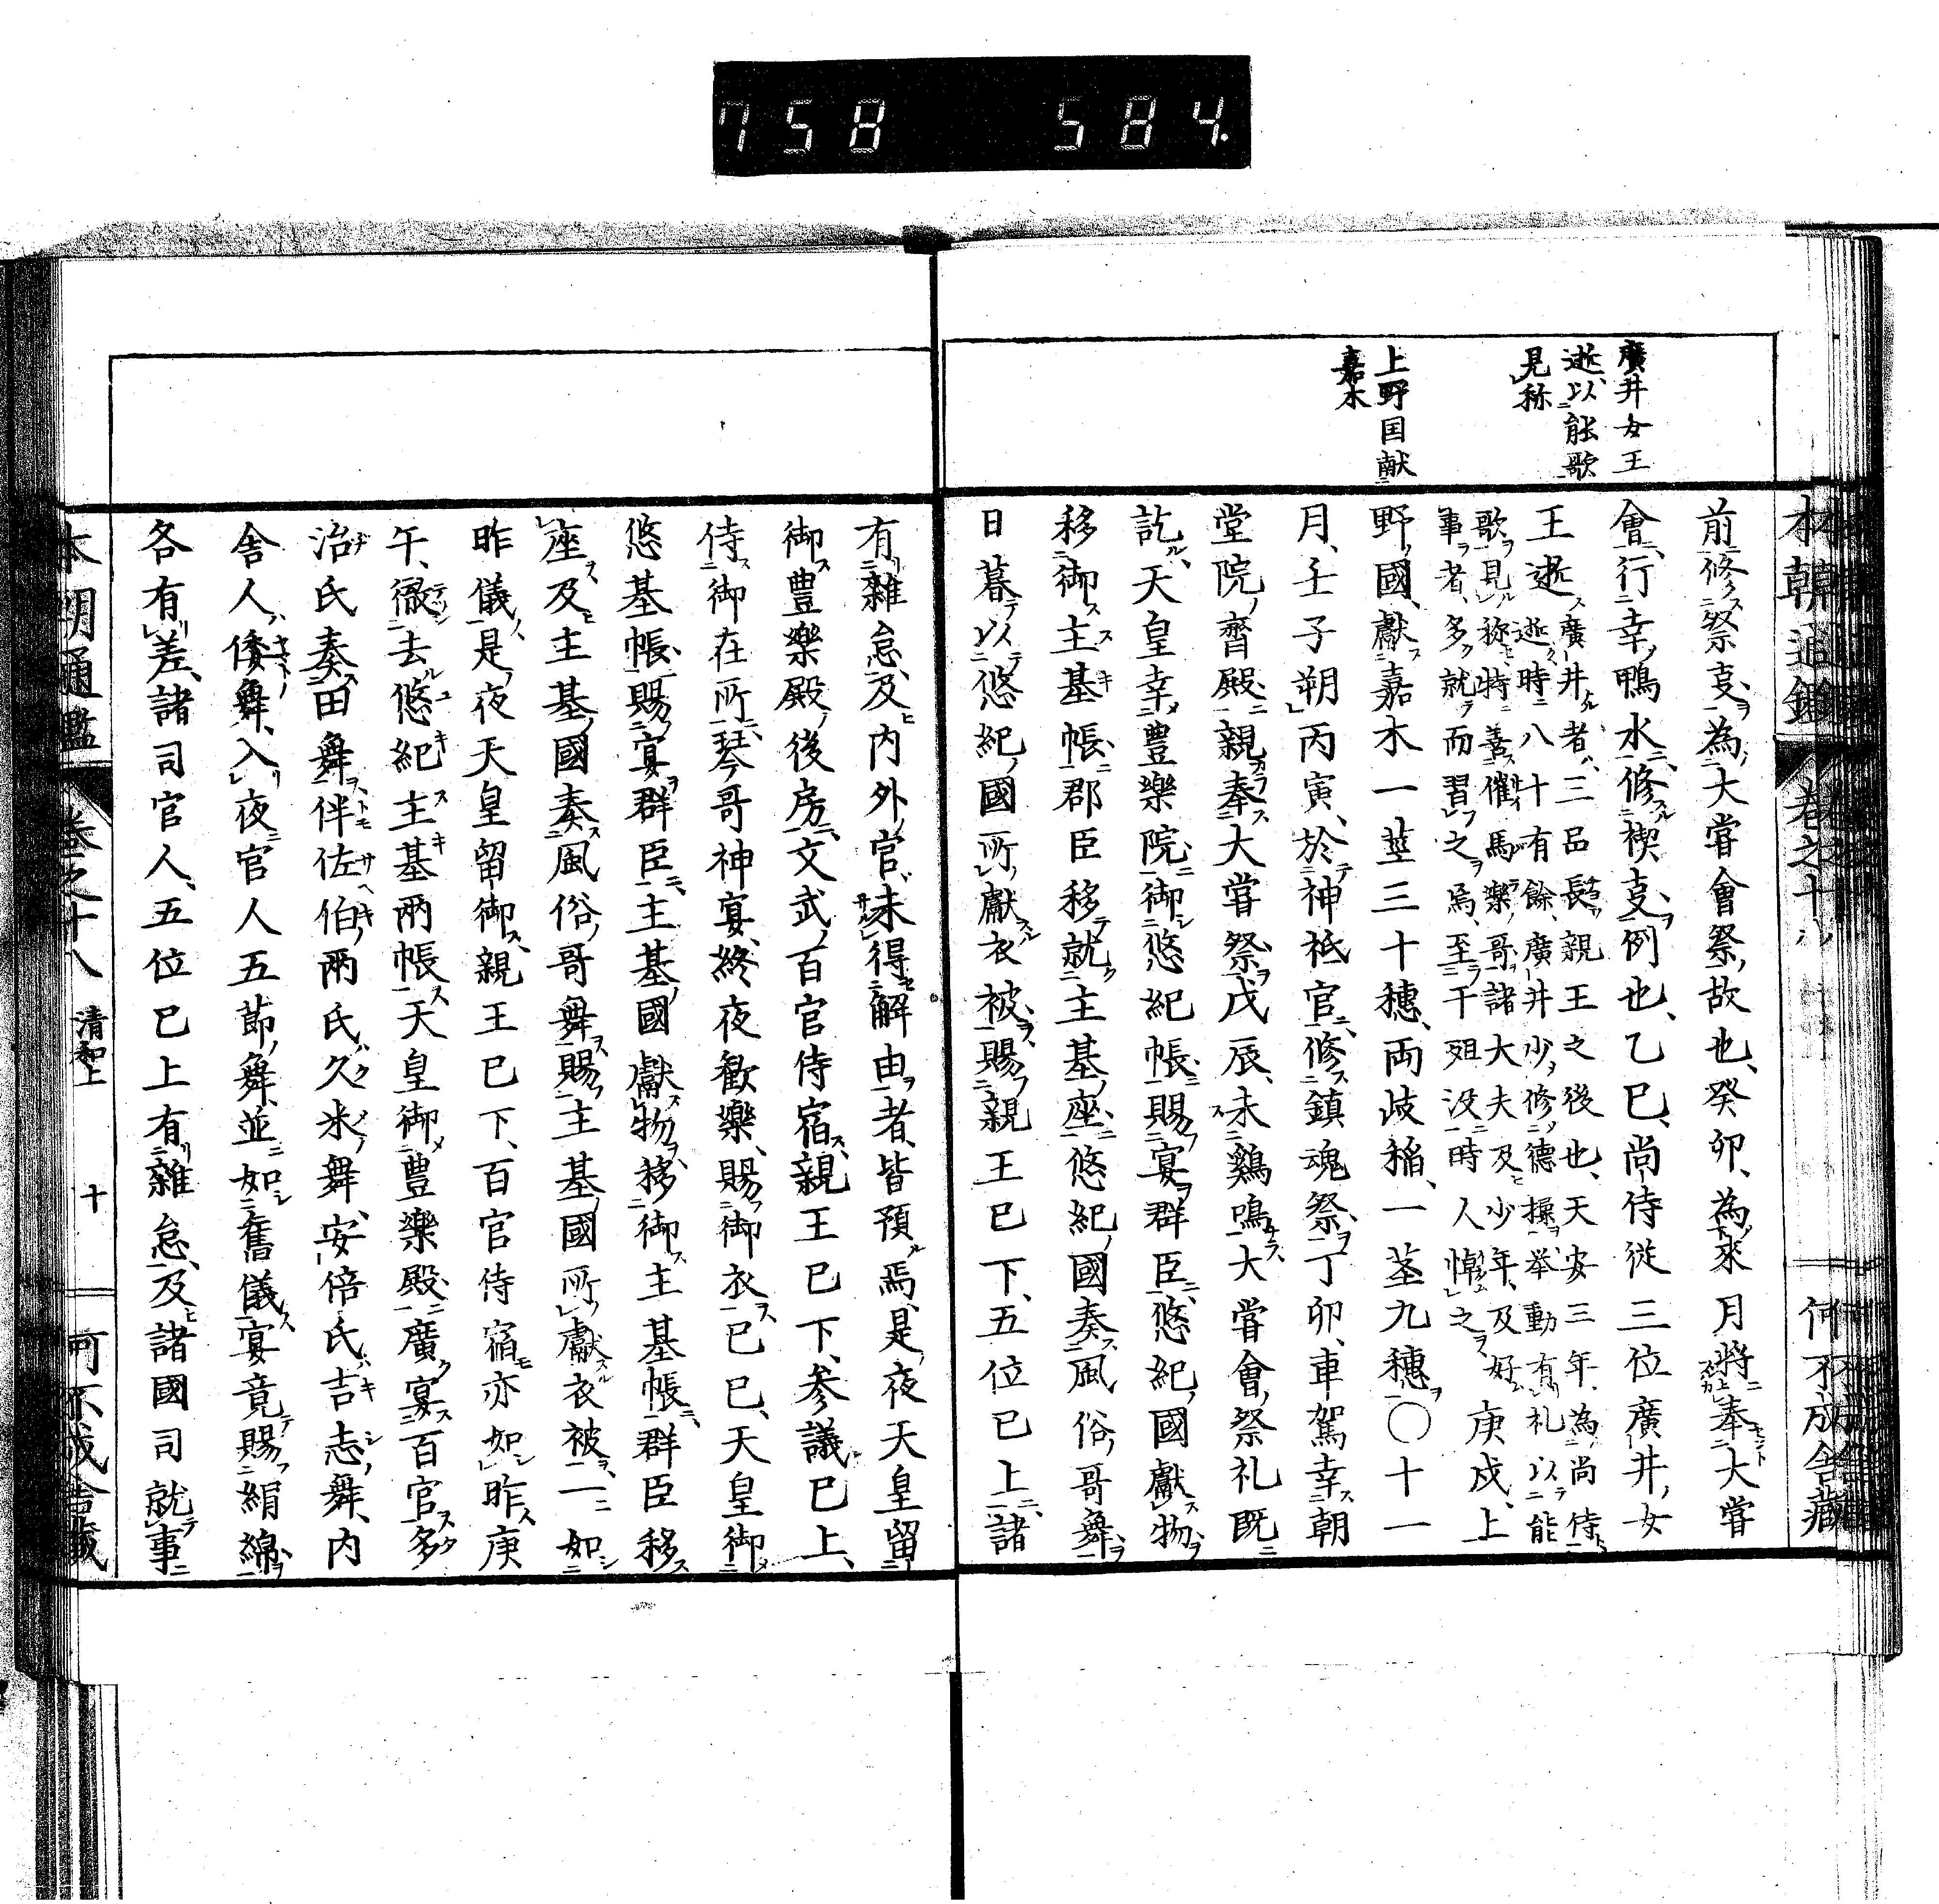 758 584.
本朝通鑑 卷之十八 何不成舎藏
廣井女王
逝以能歌
見称
上野国献
嘉木
前修祭㕝為大嘗會祭故也癸卯為來月將奉大嘗
會行幸鴨水修禊㕝例也乙巳尚侍従三位廣井女
王逝廣井者三品長親王之後也天安三年為尚侍
逝時八十有餘廣井少修德操举動有礼以能
歌見称特善催馬樂哥諸大夫及少年及好
事者多就而習之焉至于殂没時人悼之庚戌上
野國獻嘉木一莖三十穗両歧稲一茎九穗〇十一
月壬子朔丙寅於神祇官修鎮魂祭丁卯車駕幸朝
堂院齊殿親奉大嘗祭戊辰未鷄鳴大嘗會祭礼既
訖天皇幸豊樂院御悠紀帳賜宴群臣悠紀國獻物
移御主基帳郡臣移就主基座悠紀國奏風俗哥舞
日暮以悠紀國所獻衣被賜親王已下五位已上諸
有雜怠及内外官未得解由者皆預焉是夜天皇留
御豊樂殿後房文武百官侍宿親王已下参議已上
侍御在所琴哥神宴終夜歓樂賜御衣已巳天皇御
悠基帳賜宴群臣主基國獻物移御主基帳群臣移
座及主基國奏風俗哥舞賜主基國所獻衣被一如
昨儀是夜天皇留御親王已下百官侍宿亦如昨庚
午徹去悠紀主基兩帳天皇御豊樂殿廣宴百官多
治氏奏田舞伴佐伯兩氏久米舞安倍氏吉志舞内
舎人倭舞入夜官人五節舞並如舊儀宴竟賜絹綿
各有差諸司官人五位已上有雜怠及諸國司就事
本朝通鑑 卷之十八 清和上 十 何不成舎藏